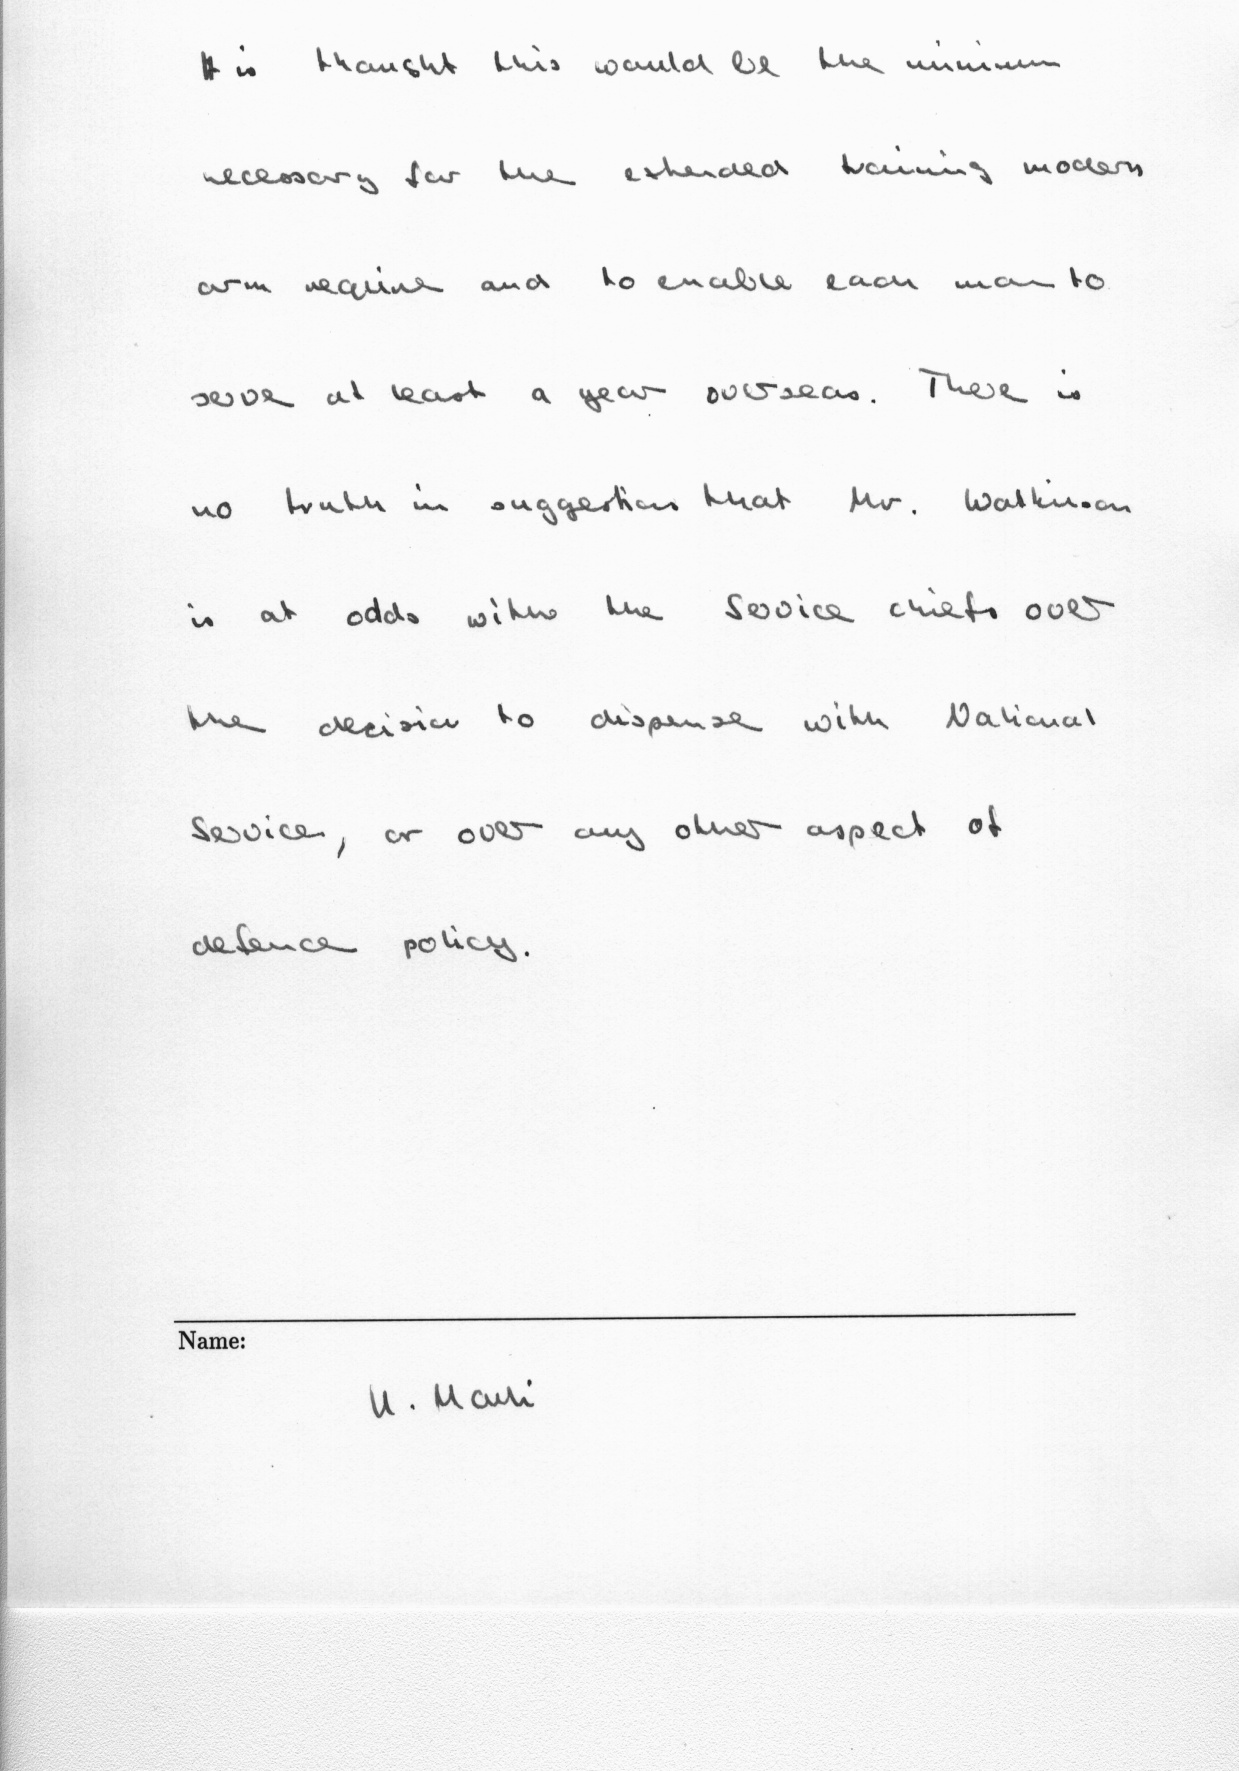 It is thought this would be the minimum
necessary for the extended training modern
arm require and to enable each man to
serve at least a year overseas. There is
no truth in suggestion that Mr. Watkinson
is at odds with the Service chiefs over
the decision to dispense with National
Service, or over any other aspect of
defence policy.
Name:
U. Marti